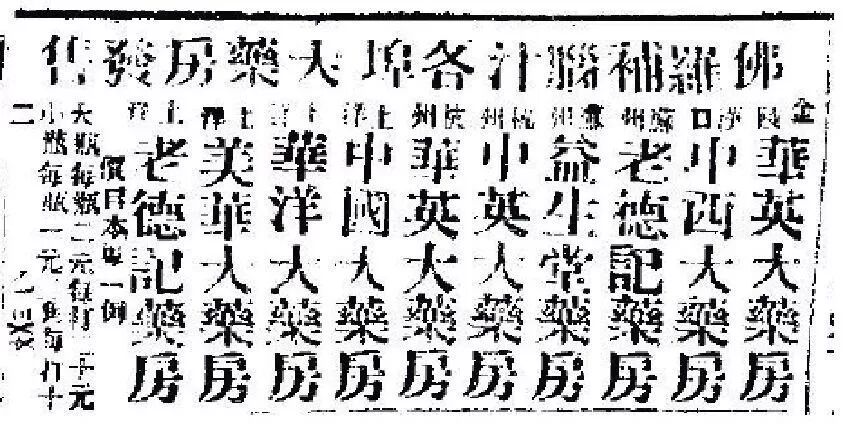 佛羅補腦汁各埠大藥房發售
金陵華英大藥房
漢口中西大藥房
蘇州老德記藥房
蘇州益生堂藥房
杭州中英大藥房
州華英大藥房
上洋中國大藥房
上洋華洋大藥房
上洋美華大藥房
上洋老德記藥房
價目本埠一例
大瓶每瓶二元每打二十元
小瓶每瓶一元每打十
二